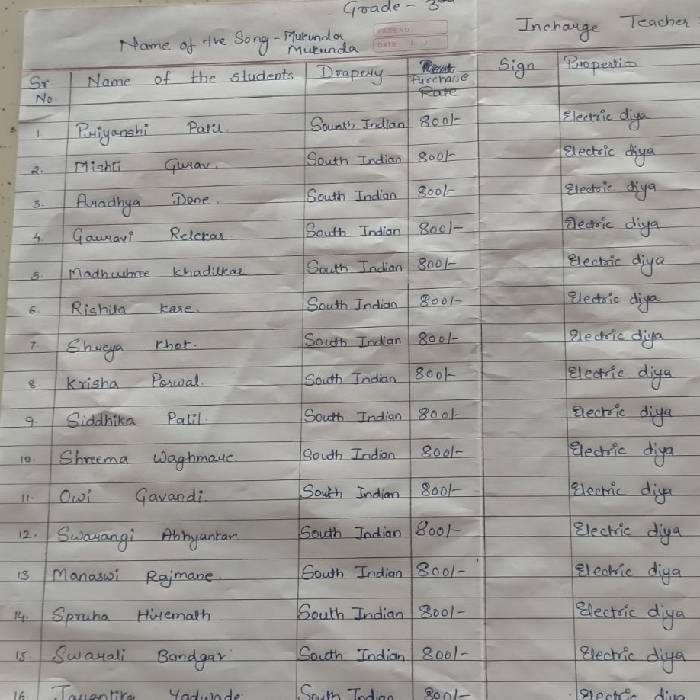 Grade - 3rd
Incharge Teacher
Name of the Song - Mukunda
Mukunda
Sr. No. Name of the students Drapery Purchase Rate Sign Properties
1 Priyanshi Patil South Indian 800/- Electric diya
2. Mishti Gurav South Indian 800/- Electric diya
3. Aradhya Done. South Indian 800/- Electric diya
4. Gauravi South Indian 800/- Electric diya
5. Madhushree Khadilkar South Indian 800/- Electric diya
6. Rishita Kare. South Indian 800/- Electric diya
7. Shreya Khot. South Indian 800/- Electric diya
8 Krisha Porwal. South Indian 800/- Electric diya
9. Siddhika Patil. South Indian 800/- Electric diya
10. Shreema Waghmare South Indian 800/- Electric diya
11. Owi Gavandi South Indian 800/- Electric diya
12. Swarangi Abhyankar South Indian 800/- Electric diya
13 Manaswi Rajmane South Indian 800/- Electric diya
14. Spruha Hiremath South Indian 800/- Electric diya
15. Swarali Bandgar South Indian 800/- Electric diya
16. South Indian 800/- Electric diya